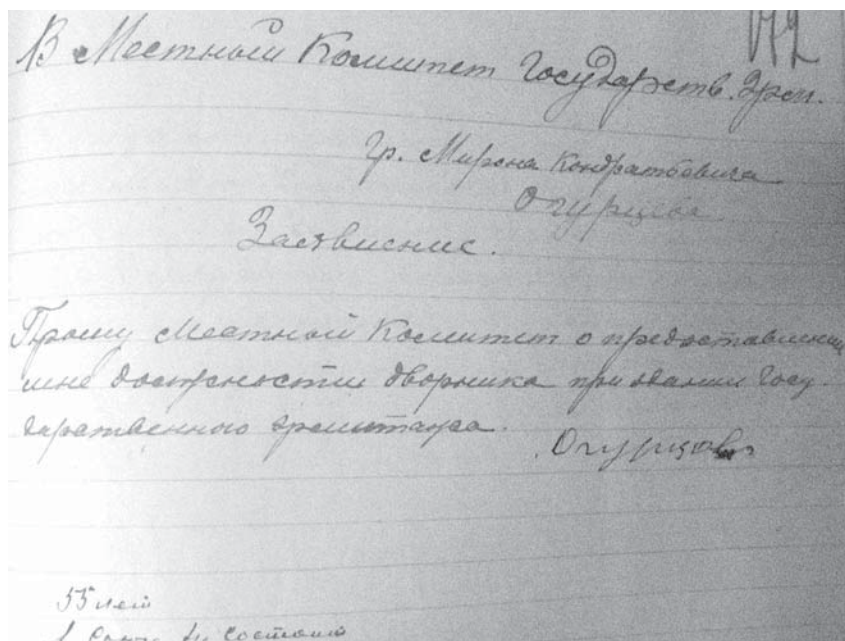 В Местный Комитет Государств. Эрм.
гр. Мирона Кондратьевича
Огурцова
Заявление.
Прошу Местный Комитет о предоставлении
мне должности дворника при здании Госу-
дарственного Эрмитажа.
Огурцовъ
55 лет
в состою